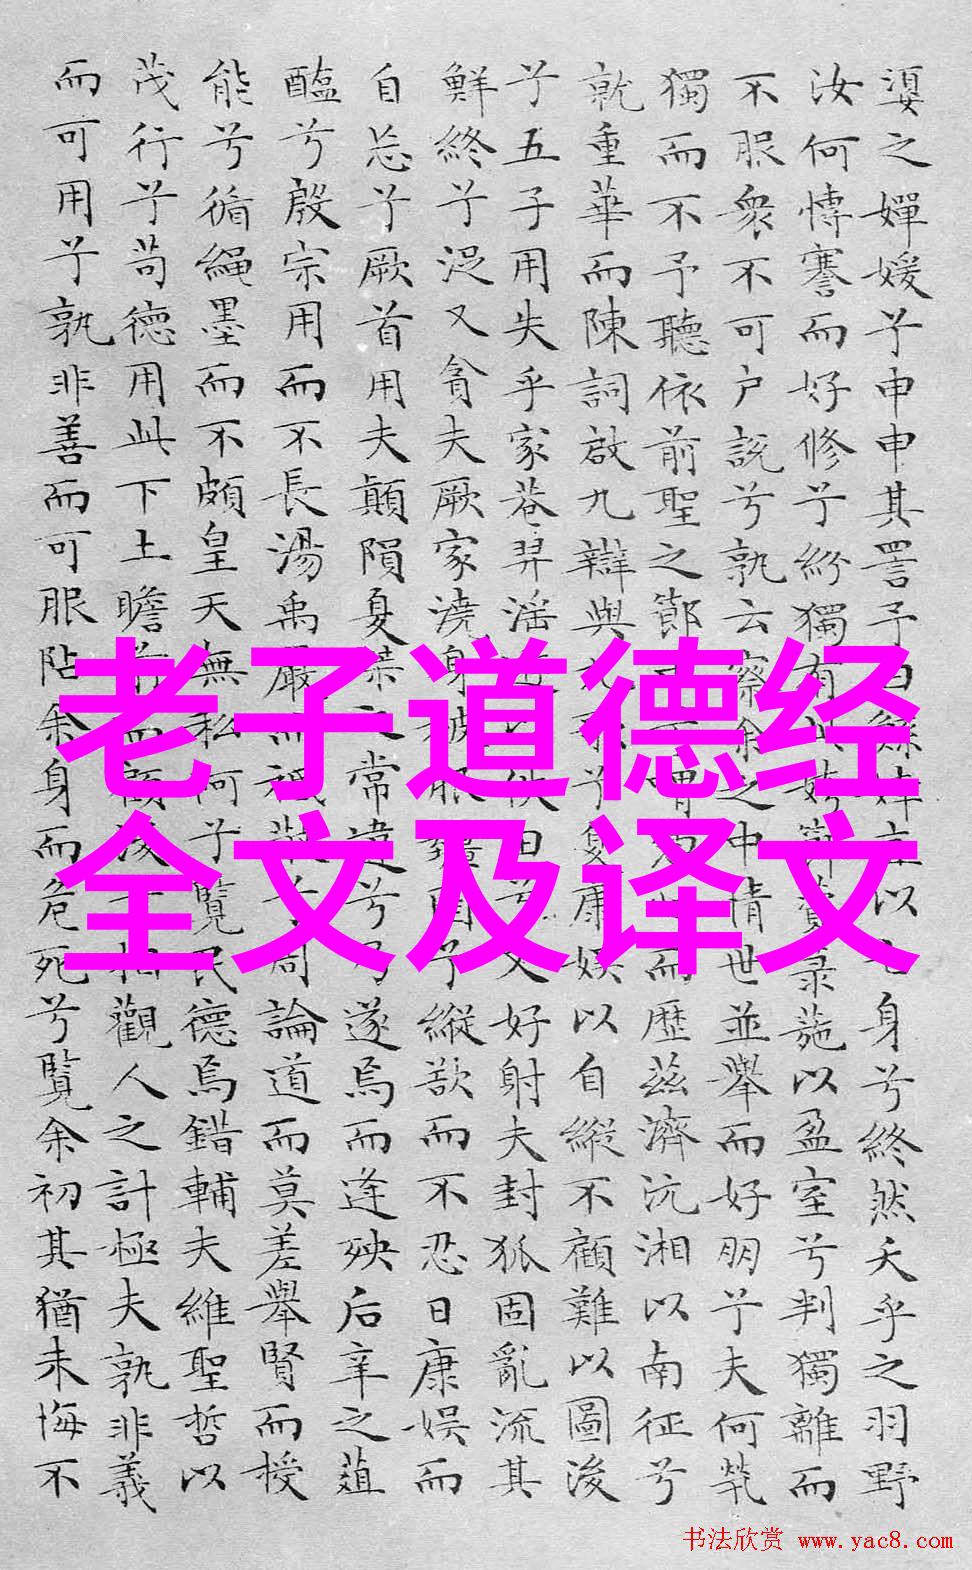 老子道德经
全文及译文
嬃之嬋媛兮申申其詈予曰以身兮終然夭乎之羽野
汝何博謇而好修兮紛獨有姱菉葹以盈室兮判獨離而
不服衆不可户説兮孰云察余之中情世並舉而好朋兮夫何煢
獨而不予聽依前聖之節喟而歷茲濟沅湘以南征兮
就重華而陳詞啟九辯與兮夏康娛以自縱不顧難以圖浚
兮五子用失乎家巷羿淫佚兮又好射夫封狐固亂流其
鮮終兮浞又貪夫厥家澆身被服圉兮縱欲而不忍日康娛而
自忘兮厥首用夫顛隕夏桀之常違兮乃遂焉而逢殃后辛之菹
醢兮殷宗用而不長湯禹嚴而祗敬兮周論道而莫差舉賢而授
能兮循繩墨而不頗皇天無私阿兮覽民德焉錯輔夫維聖哲以
茂行兮苟德用此下土瞻前而顧後相觀人之計極夫孰非義
而可用兮孰非善而可服阽余身而危死兮覽余初其猶未悔不
书法欣赏 www.yac8.com